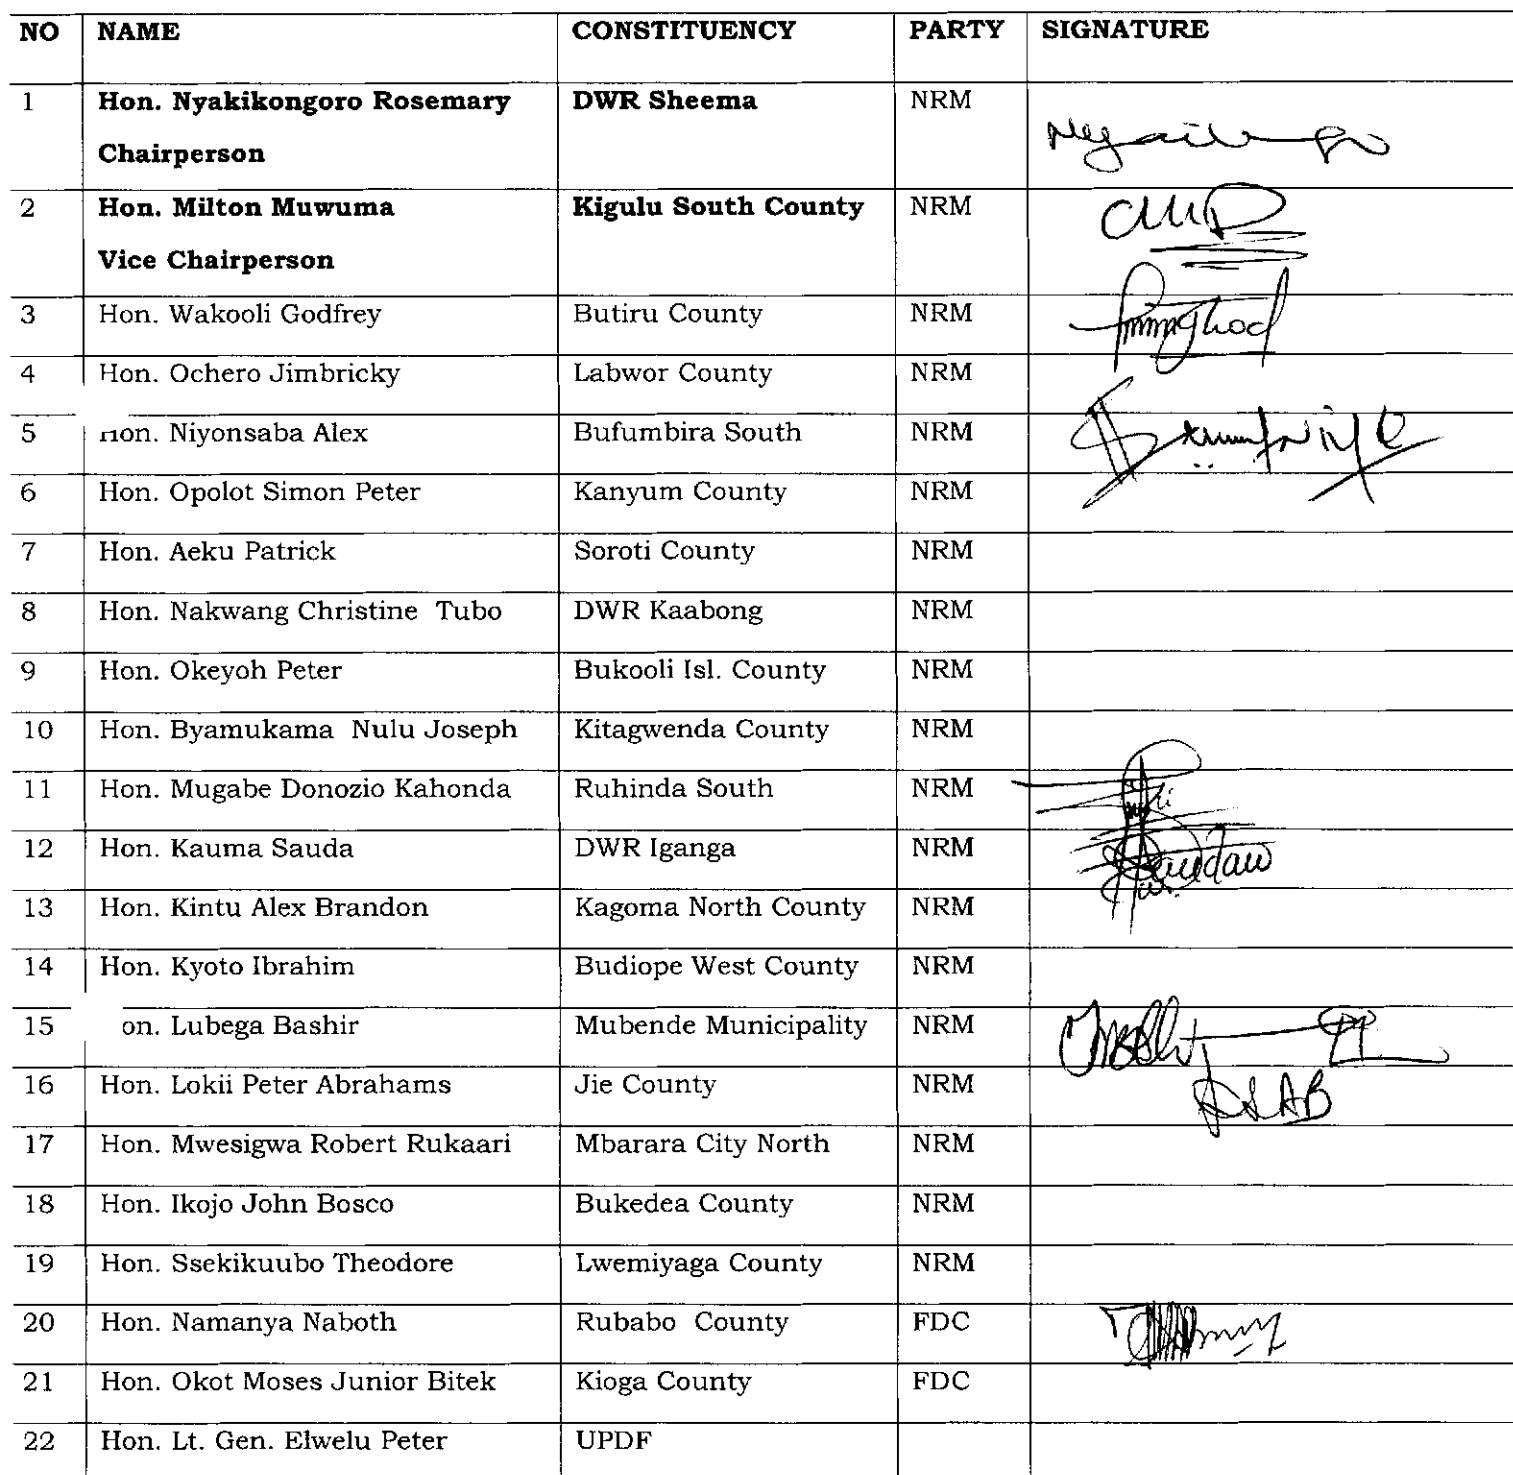 NO NAME CONSTITUENCY PARTY SIGNATURE
1 Hon. Nyakikongoro Rosemary DWR Sheema NRM
Chairperson
2 Hon. Milton Muwuma Kigulu South County NRM
Vice Chairperson
3 Hon. Wakooli Godfrey Butiru County NRM
4 Hon. Ochero Jimbricky Labwor County NRM
5 Hon. Niyonsaba Alex Bufumbira South NRM
6 Hon. Opolot Simon Peter Kanyum County NRM
7 Hon. Aeku Patrick Soroti County NRM
8 Hon. Nakwang Christine Tubo DWR Kaabong NRM
9 Hon. Okeyoh Peter Bukooli Isl. County NRM
10 Hon. Byamukama Nulu Joseph Kitagwenda County NRM
11 Hon. Mugabe Donozio Kahonda Ruhinda South NRM
12 Hon. Kauma Sauda DWR Iganga NRM
13 Hon. Kintu Alex Brandon Kagoma North County NRM
14 Hon. Kyoto Ibrahim Budiope West County NRM
15 on. Lubega Bashir Mubende Municipality NRM
16 Hon. Lokii Peter Abrahams Jie County NRM
17 Hon. Mwesigwa Robert Rukaari Mbarara City North NRM
18 Hon. Ikojo John Bosco Bukedea County NRM
19 Hon. Ssekikuubo Theodore Lwemiyaga County NRM
20 Hon. Namanya Naboth Rubabo County FDC
21 Hon. Okot Moses Junior Bitek Kioga County FDC
22 Hon. Lt. Gen. Elwelu Peter UPDF